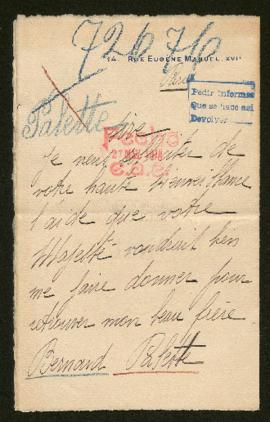 72676
14 RUE EUGÈNE MANUEL. XVIᵉ
Paris
Pedir informes
Que se hace así
Devolver
Palette
Sire
Je veux solliciter de
votre haute bienveillance
l'aide que votre
Majesté voudrait bien
me faire donner pour
retrouver mon beau frère
Bernard Palette